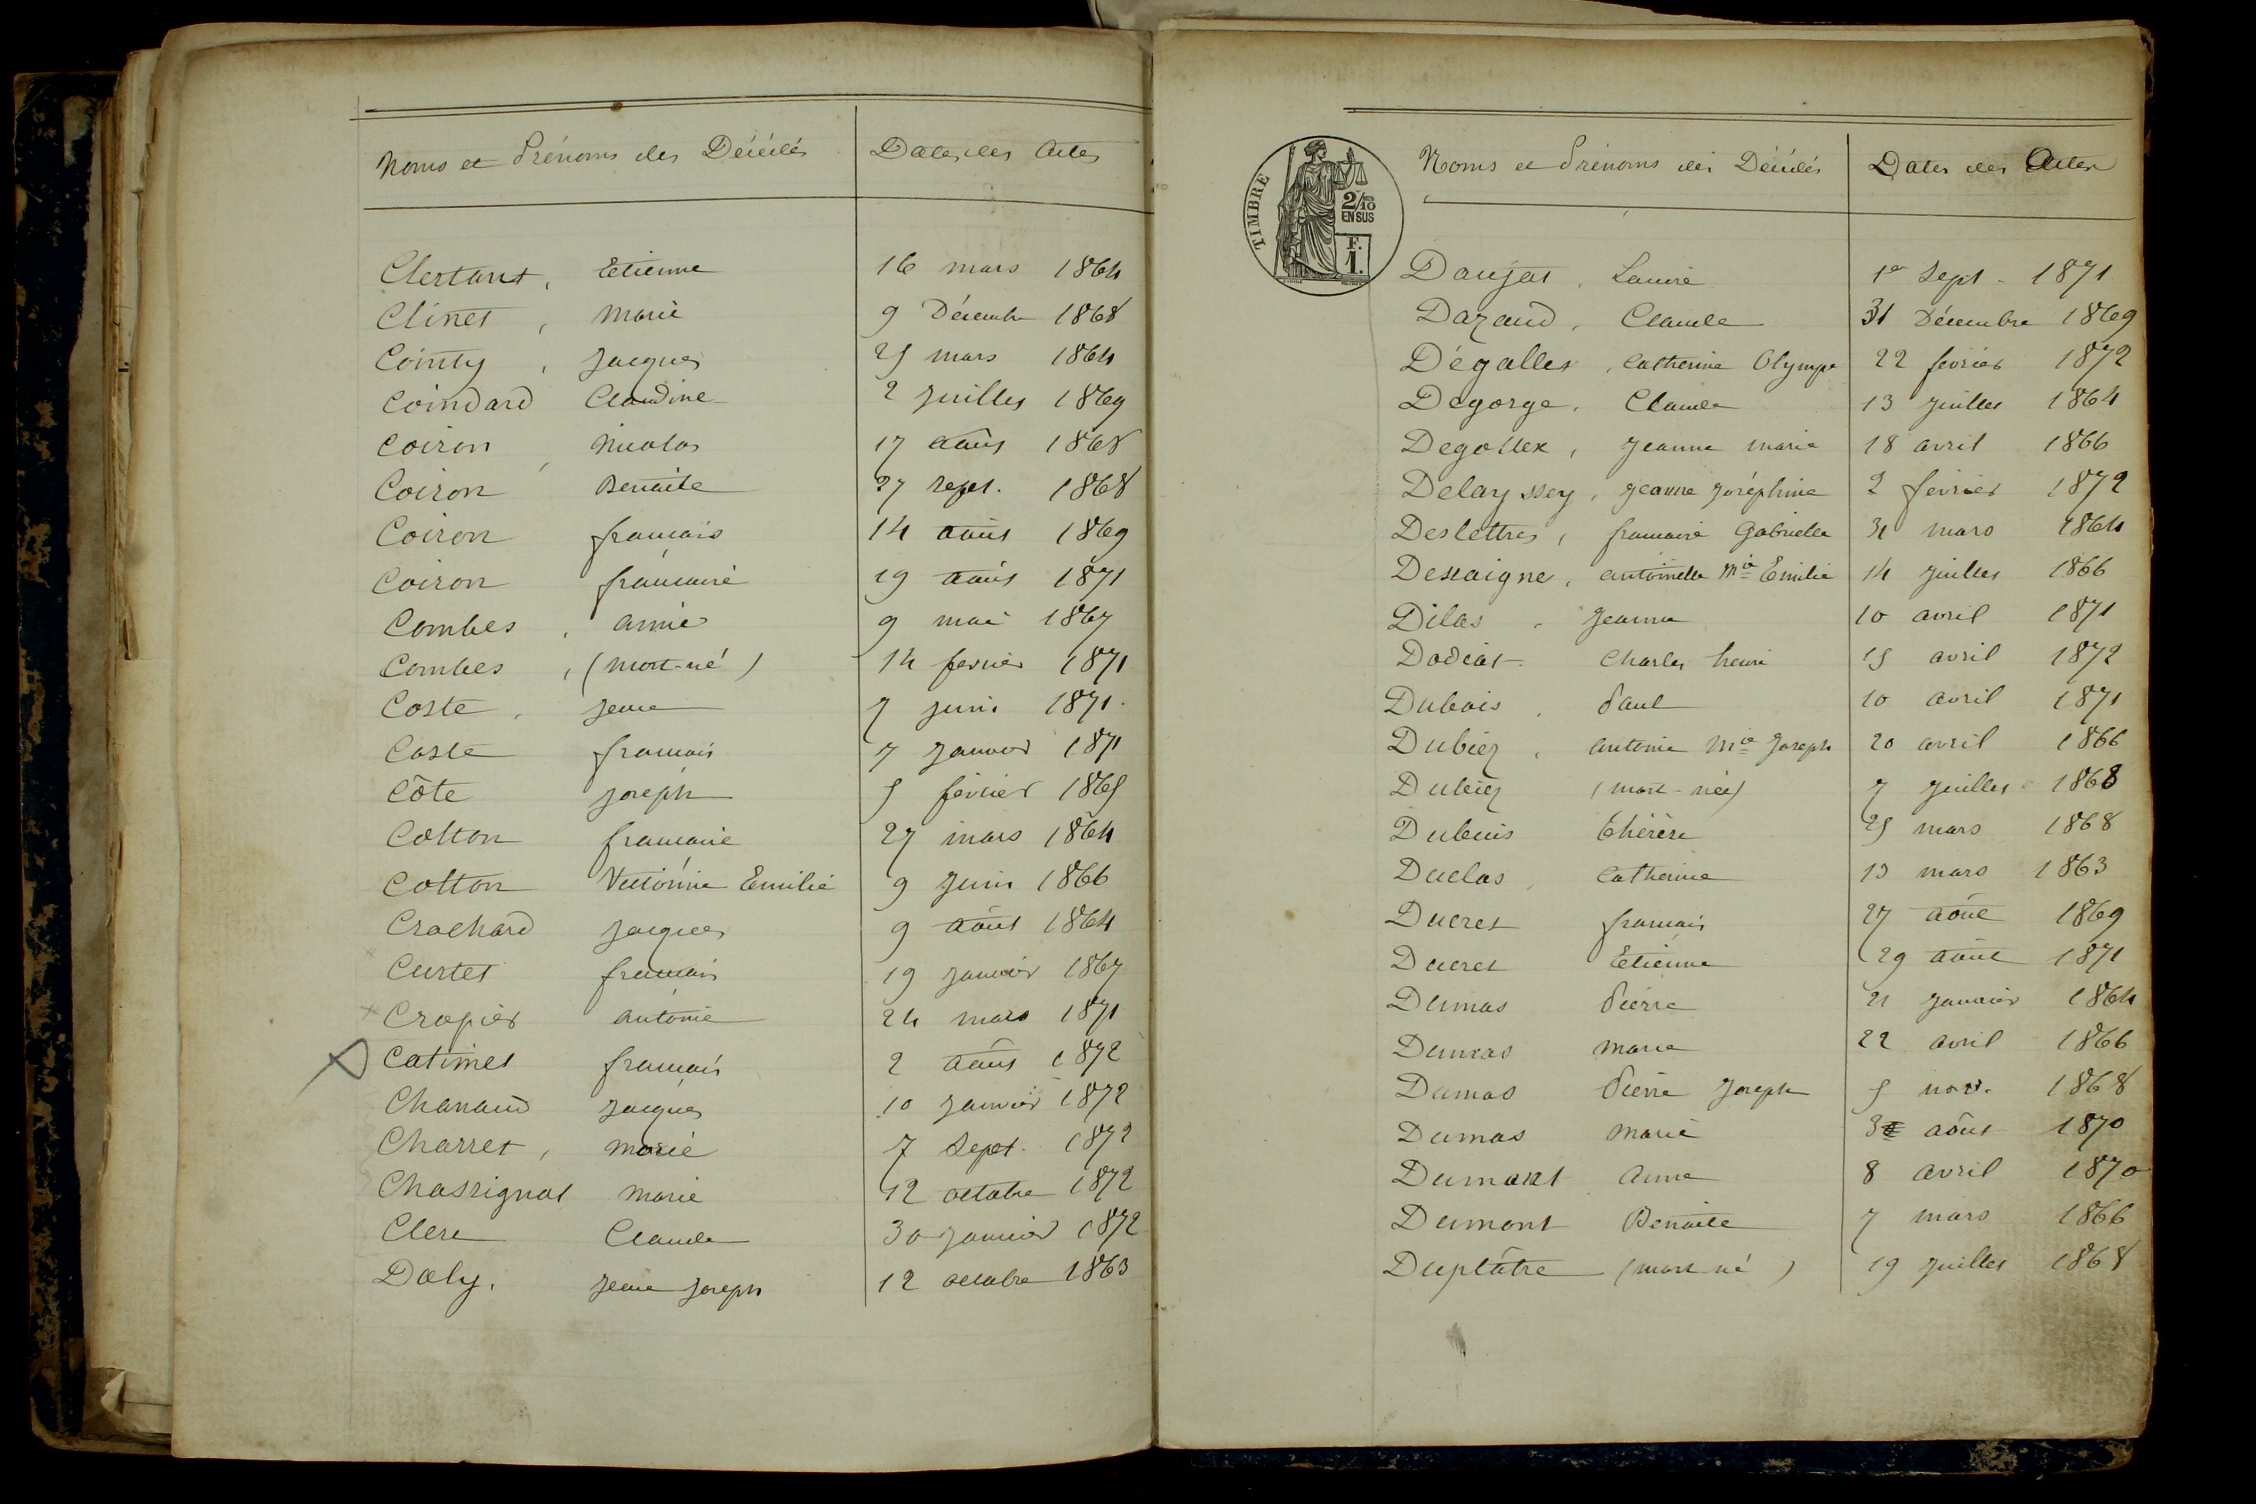 Noms et Prénoms des Décédés Dates des Actes
Clertant, Etienne 16 mars 1864
Clinet, Marie 9 Décembre 1868
Cointy, Jacques 25 mars 1864
Coindard Claudine 2 juillet 1869
Coiron, Nicolas 17 août 1868
Coiron Benoite 27 Sept. 1868
Coiron français 14 août 1869
Coiron françoise 19 août 1871
Combes, aimé 9 mai 1867
Combes, (mort-né) 14 fevrier 1871
Coste, Jean 7 juin 1871.
Coste français 7 janvier 1871
Côte Joseph 5 février 1865
Cotton françoise 27 mars 1864
Cotton Victorine Emilie 9 juin 1866
Crochard Jacques 9 août 1864
Curtet français 19 janvier 1867
Crozier antoine 24 mars 1871
Catimel français 2 août 1872
Chanaud Jacques 10 janvier 1872
Charret, Marie 7 Sept. 1872
Chassignol Marie 12 octobre 1872
Clere Claude 30 janvier 1872
Daly. Jean Joseph 12 octobre 1863
TIMBRE
2/10
EN SUS
F.
1.
Noms et Prénoms des Décédés Dates des Actes
Daujat, Louise 1er Sept. 1871
Dazaud, Claude 31 Décembre 1869
Dégalles, Catherine Olympe 22 février 1872
Degorge, Claude 13 juillet 1864
Degottex, Jeanne Marie 18 avril 1866
Delayssey, Jeanne Joséphine 2 février 1872
Deslettres, françoise Gabrielle 31 mars 1864
Dessaigne, antoinette Mie Emilie 14 juillet 1866
Dilas, Jeanne 10 avril 1871
Dodiat Charles henri 15 avril 1872
Dubois, Paul 10 avril 1871
Dubiez, antoine Mie Joseph 20 avril 1866
Dubiez (mort-née) 7 juillet 1868
Dubuis thérèse 25 mars 1868
Duclos, Catherine 13 mars 1863
Ducret français 27 août 1869
Ducret Etienne 29 août 1871
Dumas Pierre 21 janvier 1864
Dumas Marie 22 avril 1866
Dumas Pierre Joseph 5 nov. 1868
Dumas Marie août 1870
Dumont anne 8 avril 1870
Dumont Benoite 7 mars 1866
Duplâtre (mort né) 19 juillet 1868